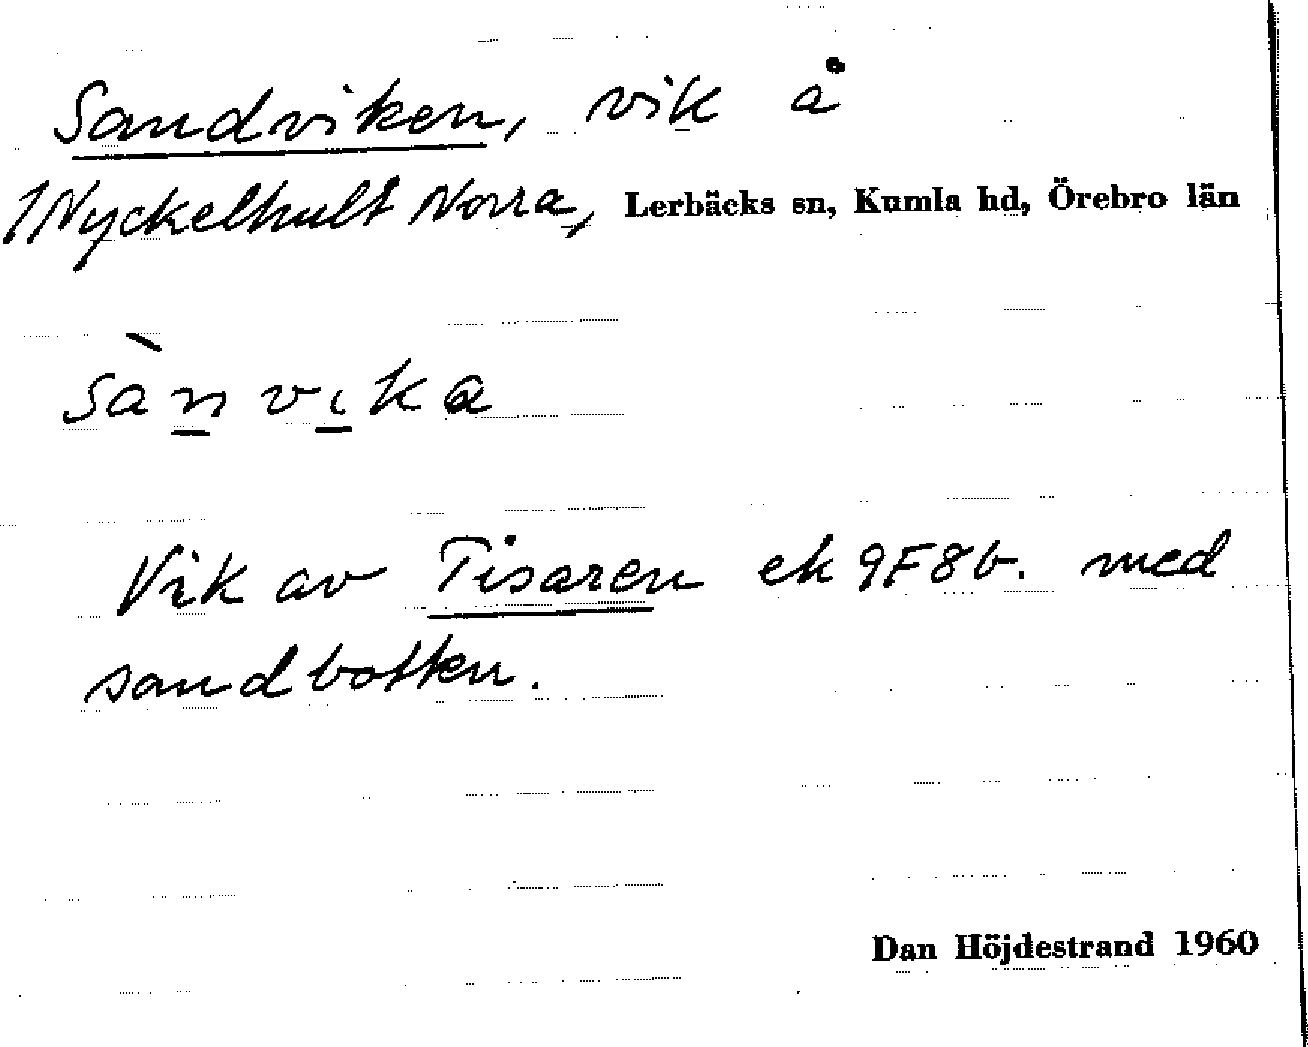 Sandviken, vik å
1 Nyckelhult Norra, Lerbäcks sn, Kumla hd, Örebro län
sànvika
Vik av Tisaren ek 9F8b. med
sandbotten.
Dan Höjdestrand 1960